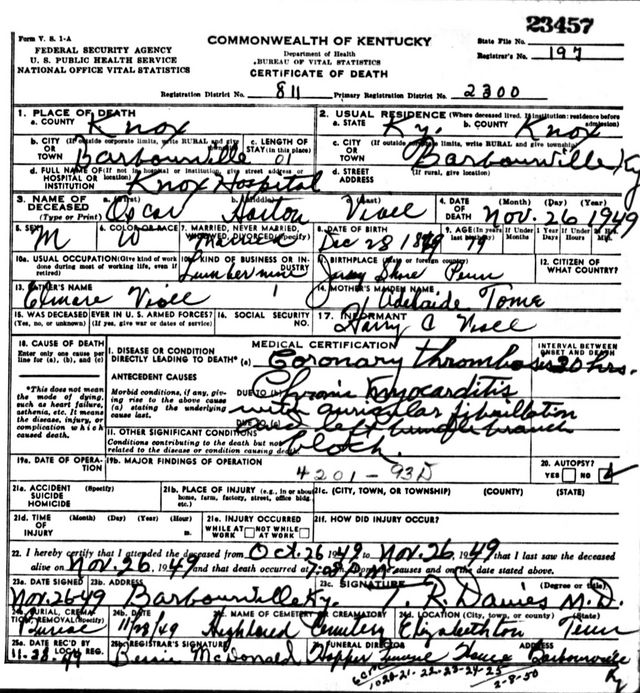 23457
Form V. S. 1-A
COMMONWEALTH OF KENTUCKY
State File No.
FEDERAL SECURITY AGENCY
Department of Health
Registrar's No. 197
U. S. PUBLIC HEALTH SERVICE
BUREAU OF VITAL STATISTICS
NATIONAL OFFICE VITAL STATISTICS
CERTIFICATE OF DEATH
Registration District No. 811 Primary Registration District No. 2300
1. PLACE OF DEATH
a. COUNTY Knox
2. USUAL RESIDENCE (Where deceased lived. If institution: residence before admission)
a. STATE Ky. b. COUNTY Knox
b. CITY (If outside corporate limits, write RURAL and give OR TOWN Barbourville
c. LENGTH OF STAY (in this place) 01
c. CITY (If outside corporate limits, write RURAL and give township) OR TOWN Barbourville Ky
d. FULL NAME OF (If not in hospital or institution, give street address or HOSPITAL OR location) INSTITUTION Knox Hospital
d. STREET ADDRESS (If rural, give location)
3. NAME OF DECEASED (Type or Print) a. (First) Oscar b. (Middle) Horton c. (Last) Viall
4. DATE OF DEATH (Month) (Day) (Year) Nov. 26 1949
5. SEX M
6. COLOR OR RACE W
7. MARRIED, NEVER MARRIED, WIDOWED, DIVORCED (Specify)
8. DATE OF BIRTH Dec 28
9. AGE If Under 1 Year If Under 24 Hrs.
Months Days Hours Min.
10a. USUAL OCCUPATION (Give kind of work done during most of working life, even if retired)
10b. KIND OF BUSINESS OR INDUSTRY
11. BIRTHPLACE (State or foreign country) Jersey Shore Penn
12. CITIZEN OF WHAT COUNTRY?
13. FATHER'S NAME Viall
14. MOTHER'S MAIDEN NAME Adelaide Tome
15. WAS DECEASED EVER IN U. S. ARMED FORCES? (Yes, no, or unknown) (If yes, give war or dates of service)
16. SOCIAL SECURITY NO.
17. INFORMANT Harry C Viall
18. CAUSE OF DEATH
Enter only one cause per line for (a), (b), and (c)
MEDICAL CERTIFICATION
INTERVAL BETWEEN ONSET AND DEATH
I. DISEASE OR CONDITION DIRECTLY LEADING TO DEATH* (a) Coronary thrombosis 20 hrs.
*This does not mean the mode of dying, such as heart failure, asthenia, etc. It means the disease, injury, or complication which caused death.
ANTECEDENT CAUSES
Morbid conditions, if any, giving rise to the above cause (a) stating the underlying cause last.
DUE TO (b) Chronic myocarditis
with auricular fibrillation
DUE TO (c) left bundle branch
block.
II. OTHER SIGNIFICANT CONDITIONS
Conditions contributing to the death but not related to the disease or condition causing death.
19a. DATE OF OPERATION
19b. MAJOR FINDINGS OF OPERATION
4201-93D
20. AUTOPSY?
YES NO
21a. ACCIDENT SUICIDE HOMICIDE (Specify)
21b. PLACE OF INJURY (e.g., in or about home, farm, factory, street, office bldg. etc.)
21c. (CITY, TOWN, OR TOWNSHIP) (COUNTY) (STATE)
21d. TIME OF INJURY (Month) (Day) (Year) (Hour) m.
21e. INJURY OCCURRED
WHILE AT WORK NOT WHILE AT WORK
21f. HOW DID INJURY OCCUR?
22. I hereby certify that I attended the deceased from Oct. 26 1949 to Nov. 26, 1949 that I last saw the deceased
alive on Nov. 26, 1949 and that death occurred at causes and on the date stated above.
23a. DATE SIGNED Nov. 26 49
23b. ADDRESS Barbourville Ky.
23c. SIGNATURE (Degree or title) T. R. Davies M.D.
24a. BURIAL, CREMATION, REMOVAL (Specify) Burial
24b. DATE 11/28/49
24c. NAME OF CEMETERY OR CREMATORY Highland Cemetery
24d. LOCATION (City, town, or county) (State) Elizabethton Tenn
25a. DATE REC'D BY LOCAL REG. 11-28-49
25b. REGISTRAR'S SIGNATURE Bessie McDonald
FUNERAL DIRECTOR ADDRESS
Hopper Funeral Home Barbourville Ky
2-8-50